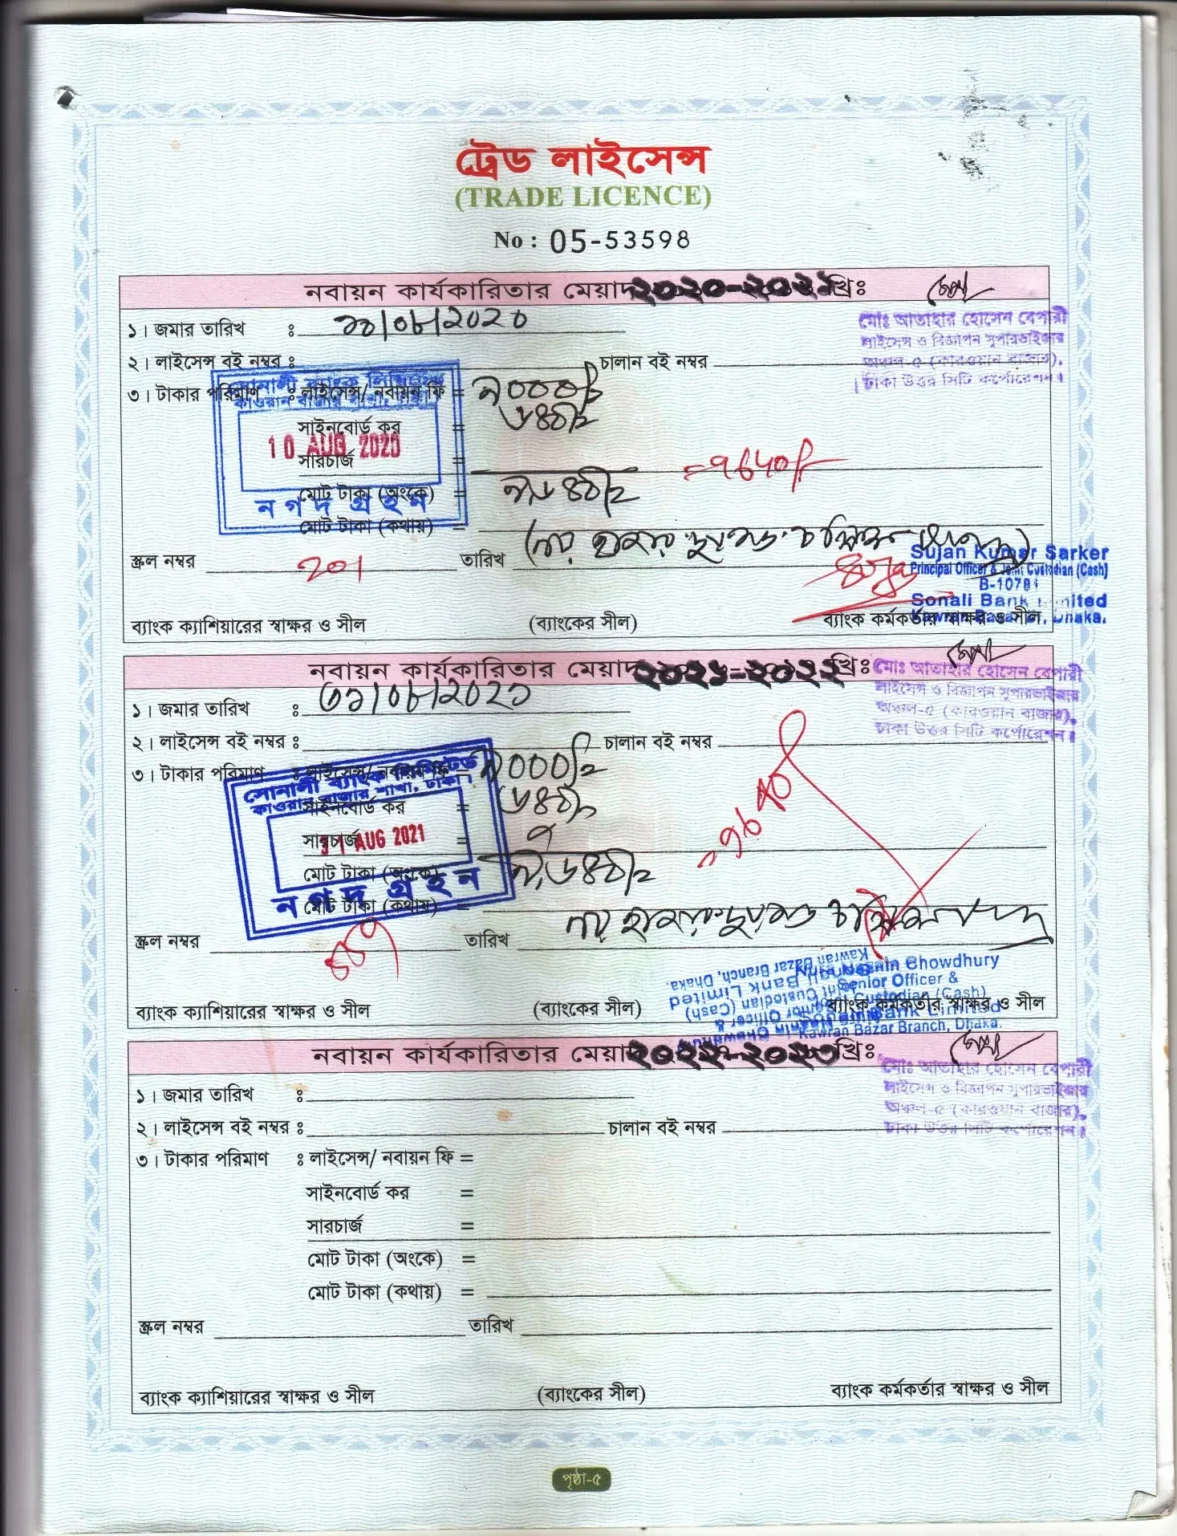 ট্রেড লাইসেন্স
(TRADE LICENCE)
No : 05-53598
নবায়ন কার্যকারিতার মেয়াদ ২০২০-২০২১ খ্রিঃ
মোঃ আতাহার হোসেন বেপারী
লাইসেন্স ও বিজ্ঞাপন সুপারভাইজার
অঞ্চল-৫ (কারওয়ান বাজার),
ঢাকা উত্তর সিটি কর্পোরেশন।
১। জমার তারিখ ঃ ১০/০৮/২০২০
২। লাইসেন্স বই নম্বর ঃ চালান বই নম্বর
৩। টাকার পরিমাণ ঃ লাইসেন্স/ নবায়ন ফি = ৯০০০/-
সোনালী ব্যাংক লিমিটেড
কাওরান বাজার শাখা, ঢাকা।
সাইনবোর্ড কর = ৬৪০/-
10 AUG 2020
সারচার্জ =
=9640/-
মোট টাকা (অংকে) = ৯,৬৪০/-
নগদ গ্রহন
মোট টাকা (কথায়) = (নয় হাজার ছয়শত চল্লিশ
স্ক্রল নম্বর 201 তারিখ
Sujan Kumar Sarker
Principal Officer & Joint Custodian (Cash)
B-10781
Sonali Bank Limited
Kawran Bazar Br, Dhaka.
ব্যাংক ক্যাশিয়ারের স্বাক্ষর ও সীল (ব্যাংকের সীল) ব্যাংক কর্মকর্তার স্বাক্ষর ও সীল
নবায়ন কার্যকারিতার মেয়াদ ২০২১-২০২২ খ্রিঃ
মোঃ আতাহার হোসেন বেপারী
লাইসেন্স ও বিজ্ঞাপন সুপারভাইজার
অঞ্চল-৫ (কারওয়ান বাজার),
ঢাকা উত্তর সিটি কর্পোরেশন।
১। জমার তারিখ ঃ ৩১/০৮/২০২১
২। লাইসেন্স বই নম্বর ঃ চালান বই নম্বর
৩। টাকার পরিমাণ ঃ লাইসেন্স/ নবায়ন ফি = ৯০০০/-
সোনালী ব্যাংক লিমিটেড
কাওরান বাজার শাখা, ঢাকা।
সাইনবোর্ড কর = ৬৪০/-
সারচার্জ =
31 AUG 2021
=9640
মোট টাকা (অংকে) = ৯,৬৪০/-
নগদ গ্রহন
মোট টাকা (কথায়) = নয় হাজার ছয়শত চল্লিশ
স্ক্রল নম্বর তারিখ
Chowdhury
Senior Officer &
Joint Custodian (Cash)
Sonali Bank Limited
Kawran Bazar Branch, Dhaka.
ব্যাংক ক্যাশিয়ারের স্বাক্ষর ও সীল (ব্যাংকের সীল) ব্যাংক কর্মকর্তার স্বাক্ষর ও সীল
নবায়ন কার্যকারিতার মেয়াদ ২০২২-২০২৩ খ্রিঃ
মোঃ আতাহার হোসেন বেপারী
লাইসেন্স ও বিজ্ঞাপন সুপারভাইজার
অঞ্চল-৫ (কারওয়ান বাজার),
ঢাকা উত্তর সিটি কর্পোরেশন।
১। জমার তারিখ ঃ
২। লাইসেন্স বই নম্বর ঃ চালান বই নম্বর
৩। টাকার পরিমাণ ঃ লাইসেন্স/ নবায়ন ফি =
সাইনবোর্ড কর =
সারচার্জ =
মোট টাকা (অংকে) =
মোট টাকা (কথায়) =
স্ক্রল নম্বর তারিখ
ব্যাংক ক্যাশিয়ারের স্বাক্ষর ও সীল (ব্যাংকের সীল) ব্যাংক কর্মকর্তার স্বাক্ষর ও সীল
পৃষ্ঠা-৫